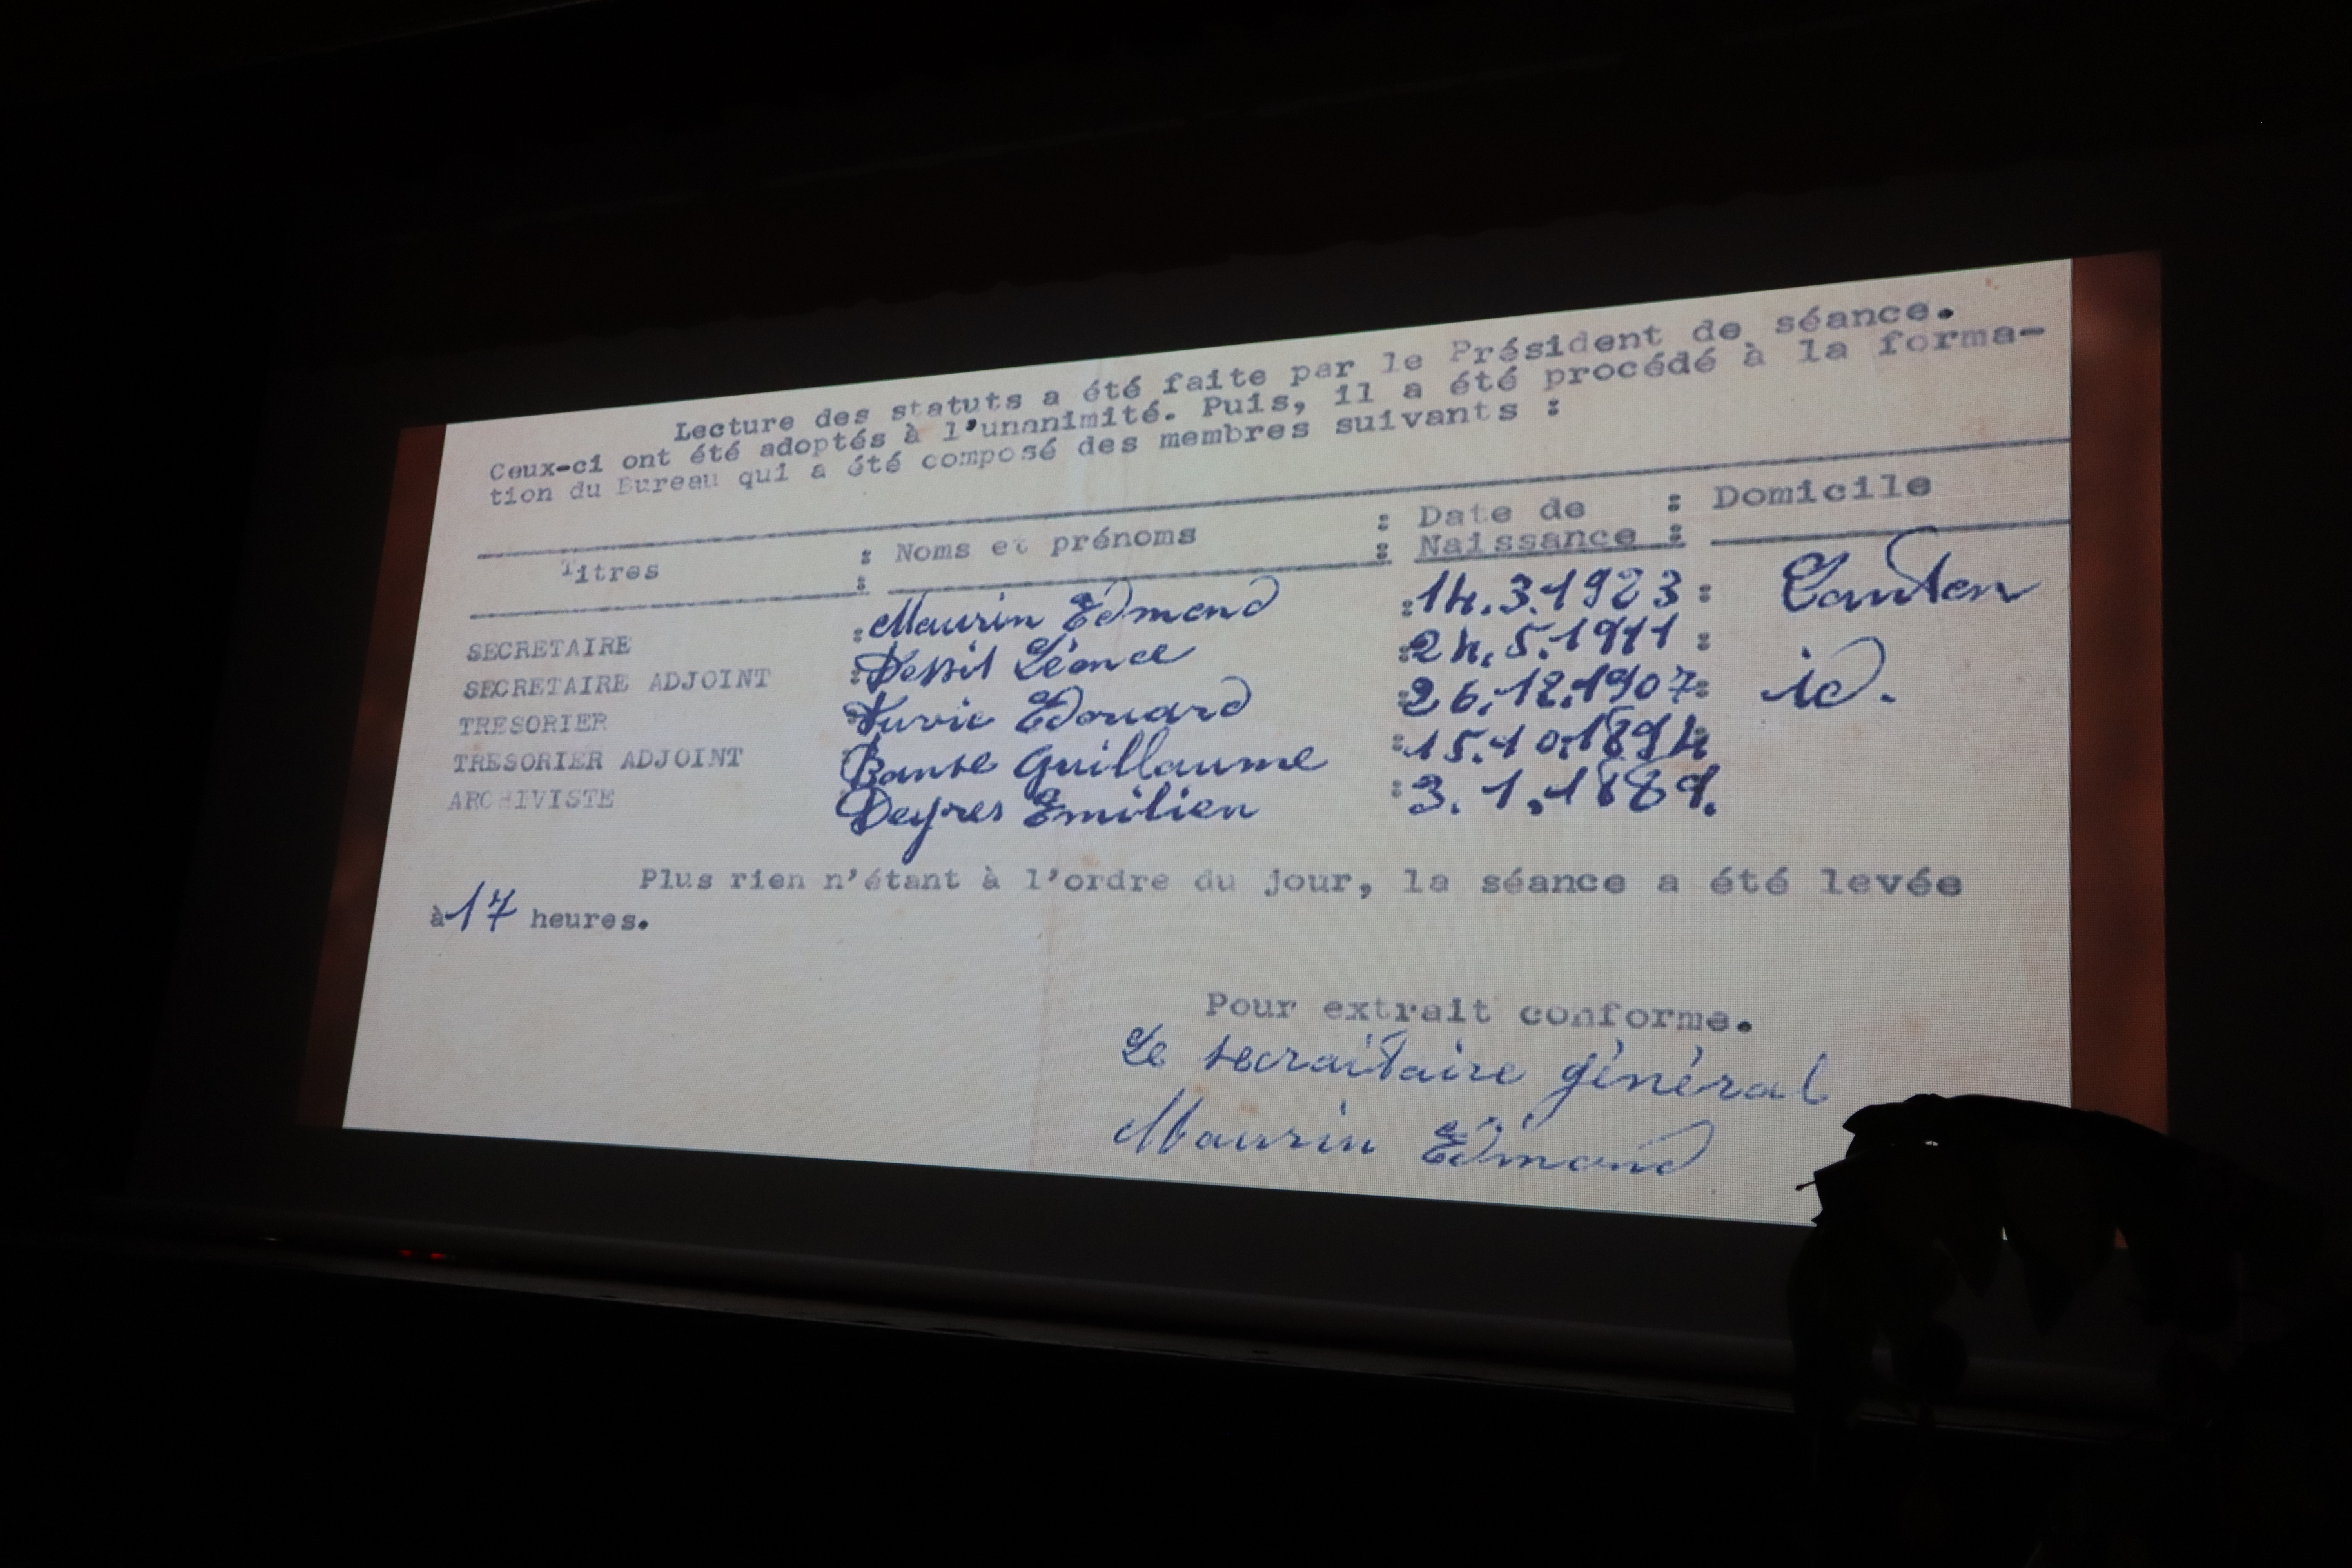 Lecture des statuts a été faite par le Président de séance.
Ceux-ci ont été adoptés à l'unanimité. Puis, il a été procédé à la forma-
tion du Bureau qui a été composé des membres suivants :
Titres : Noms et prénoms : Date de Naissance : Domicile
SECRETAIRE : Maurin Edmond : 14.3.1923 :
SECRETAIRE ADJOINT : Léonce : 24.5.1911 :
TRESORIER : Edouard : 26.12.1907 : id.
TRESORIER ADJOINT : Banse Guillaume : 15.10.1894
ARCHIVISTE Deyres Emilien : 3.1.1889.
Plus rien n'étant à l'ordre du jour, la séance a été levée
à 17 heures.
Pour extrait conforme.
Le secraitaire général
Maurin Edmond